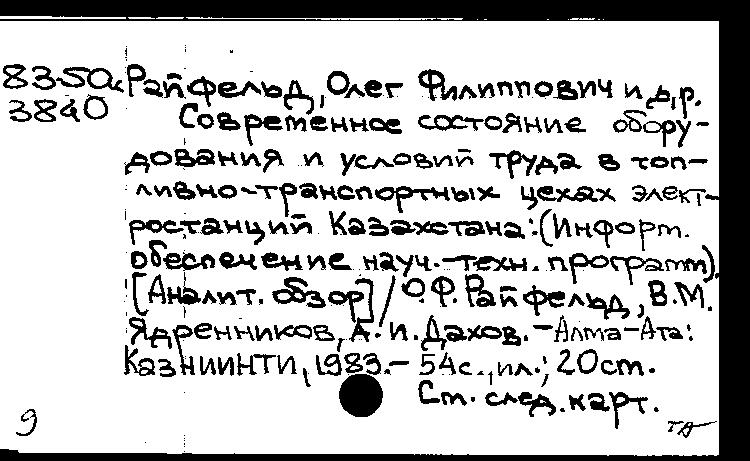 83-50 Райфельд, Олег Филиппович и др.
3840 Современное состояние обору-
дования и условий труда в топ-
ливно-транспортных цехах элект-
ростанций Казахстана: (Информ.
обеспечение науч.-техн. программ).
[Аналит. обзор] / О.Ф. Райфельд, В.М.
Ядренников, А.И. Дахов. - Алма-Ата:
КазНИИНТИ, 1983. - 54с., ил.; 20 см.
См. след. карт.
9